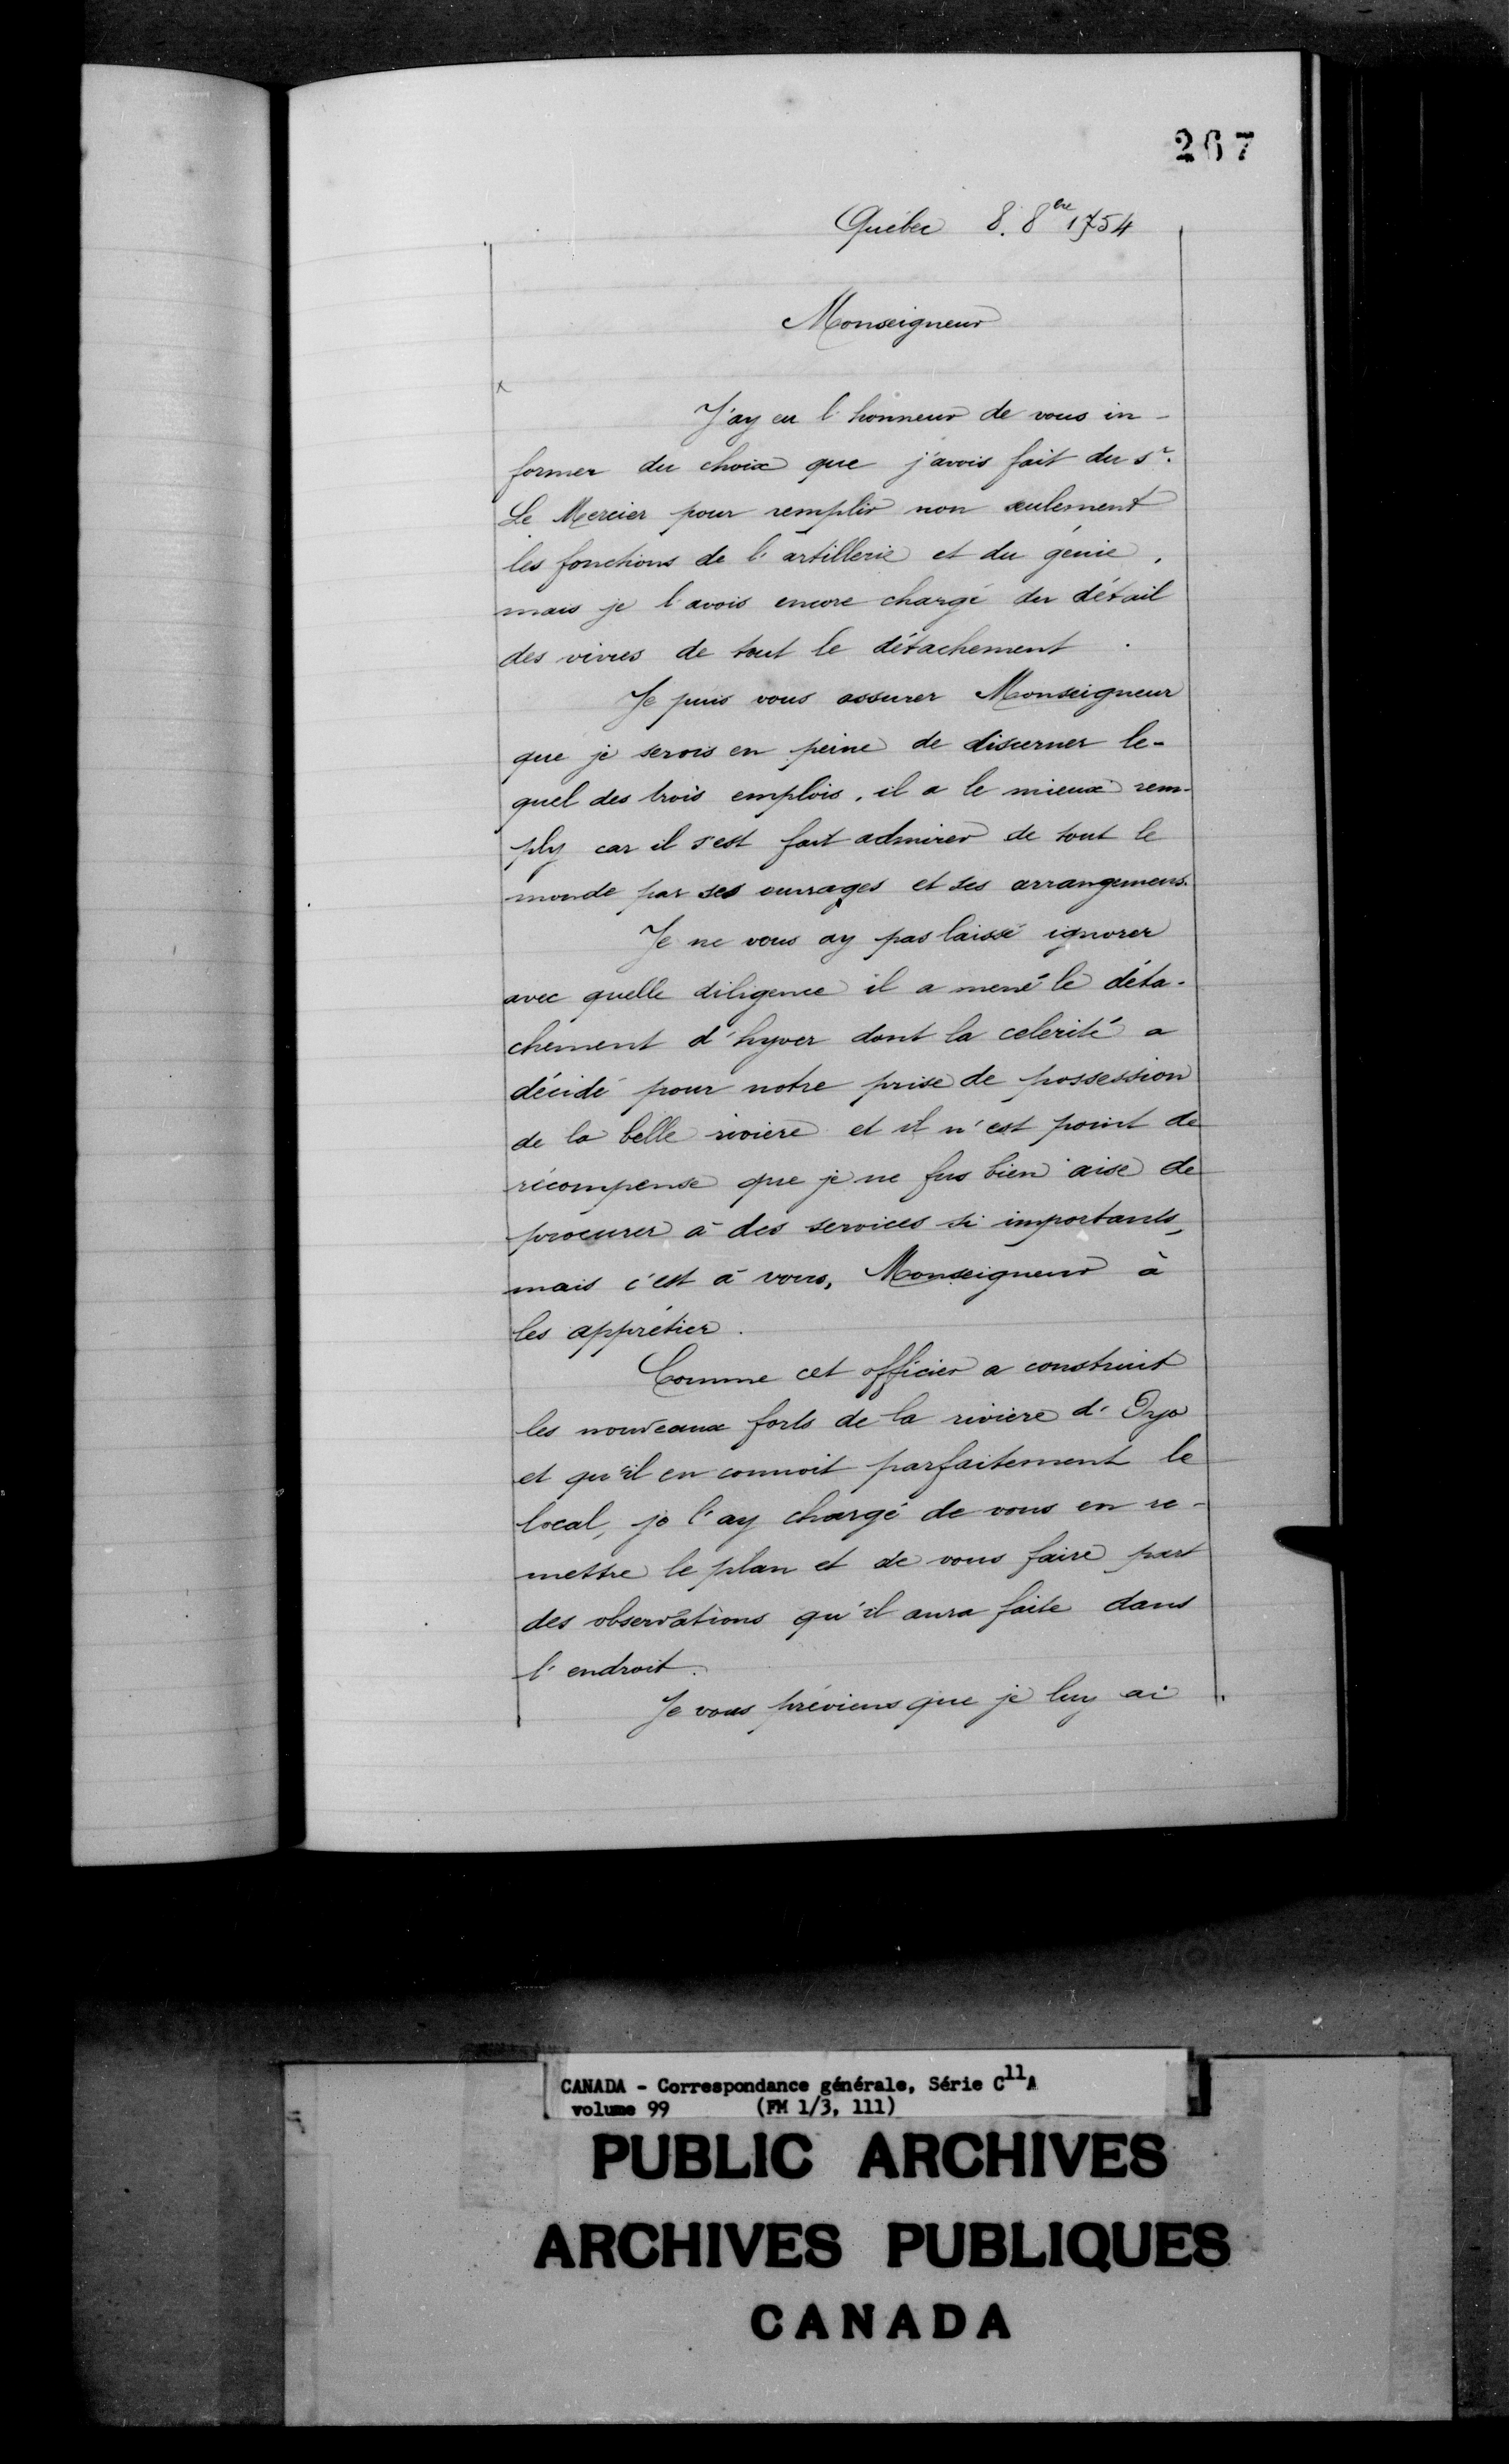 267
Québec 8. 8bre 1754
Monseigneur
J'ay eu l'honneur de vous in-
former du choix que j'avois fait du sr.
Le Mercier pour remplir non seulement
les fonctions de l'artillerie et du génie,
mais je l'avois encore chargé du détail
des vivres de tout le détachement.
Je puis vous assurer Monseigneur
que je serois en peine de discerner le-
quel des trois emplois, il a le mieux rem-
ply car il s'est fait admirer de tout le
monde par ses ouvrages et ses arrangemens.
Je ne vous ay pas laissé ignorer
avec quelle diligence il a mené le déta-
chement d'hyver dont la celerité a
décidé pour notre prise de possession
de la belle riviere et il n'est point de
récompense que je ne fus bien aise de
procurer à des services si importants,
mais c'est à vous, Monseigneur à
les apprétier.
Comme cet officier a construit
les nouveaux forts de la riviere d'Oyo
et qu'il en connoit parfaitement le
local, je l'ay chargé de vous en re-
mettre le plan et de vous faire part
des observations qu'il aura faite dans
l'endroit.
Je vous préviens que je luy ai
CANADA - Correspondance générale, Série C11A
volume 99 (FM 1/3, 111)
PUBLIC ARCHIVES
ARCHIVES PUBLIQUES
CANADA